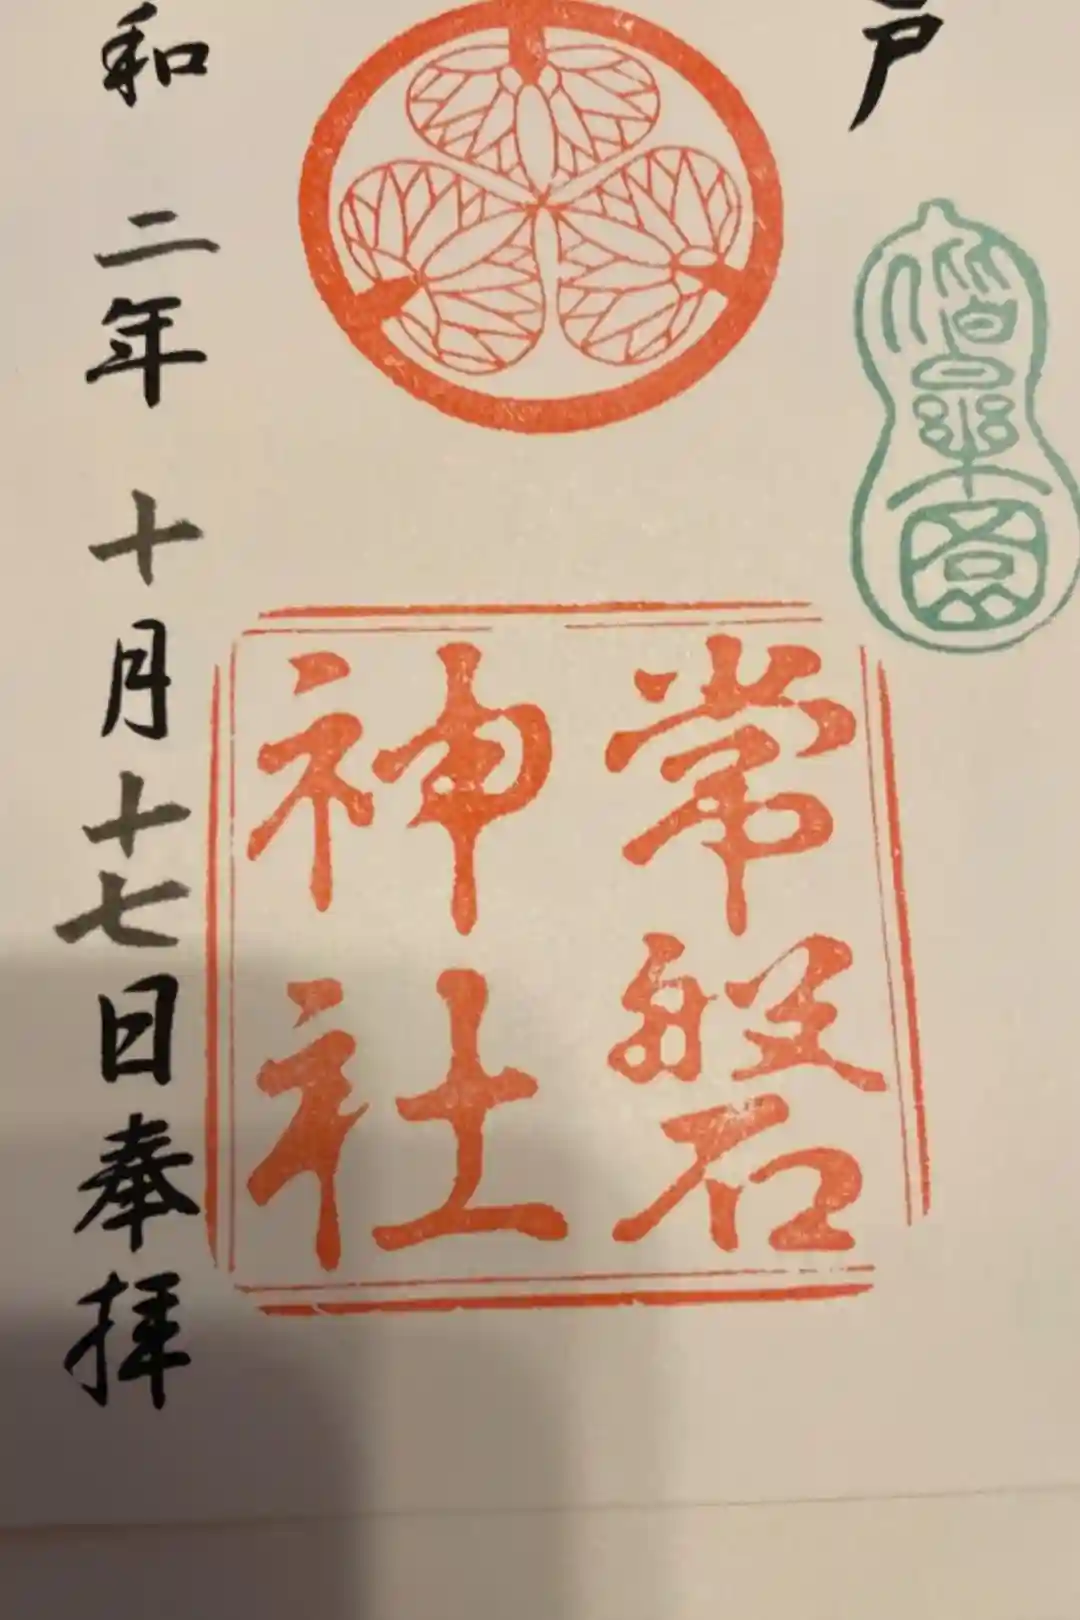 戸
偕楽園
常磐
神社
和二年十月十七日奉拝